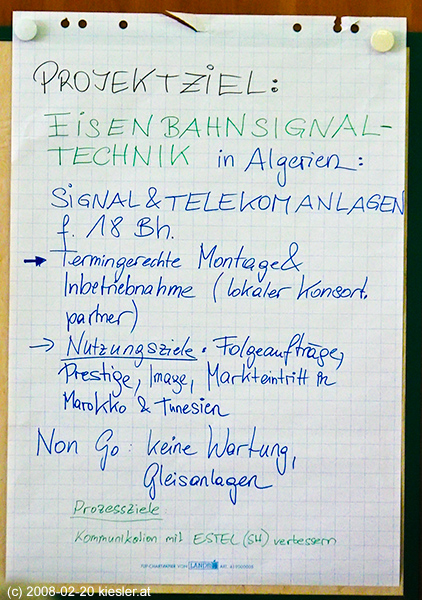 PROJEKTZIEL:
EISENBAHNSIGNAL-
TECHNIK in Algerien:
SIGNAL & TELEKOMANLAGEN
f. 18 Bh.
→ Termingerechte Montage &
Inbetriebnahme (lokaler Konsort.
partner)
→ Nutzungsziele: Folgeaufträge,
Prestige, Image, Markteintritt in
Marokko & Tunesien
Non Go: keine Wartung,
Gleisanlagen
Prozessziele
Kommunikation mit ESTEL (SH) verbessern
FLIP-CHARTPAPIER VON LANDRÉ
(c) 2008-02-20 kiesler.at